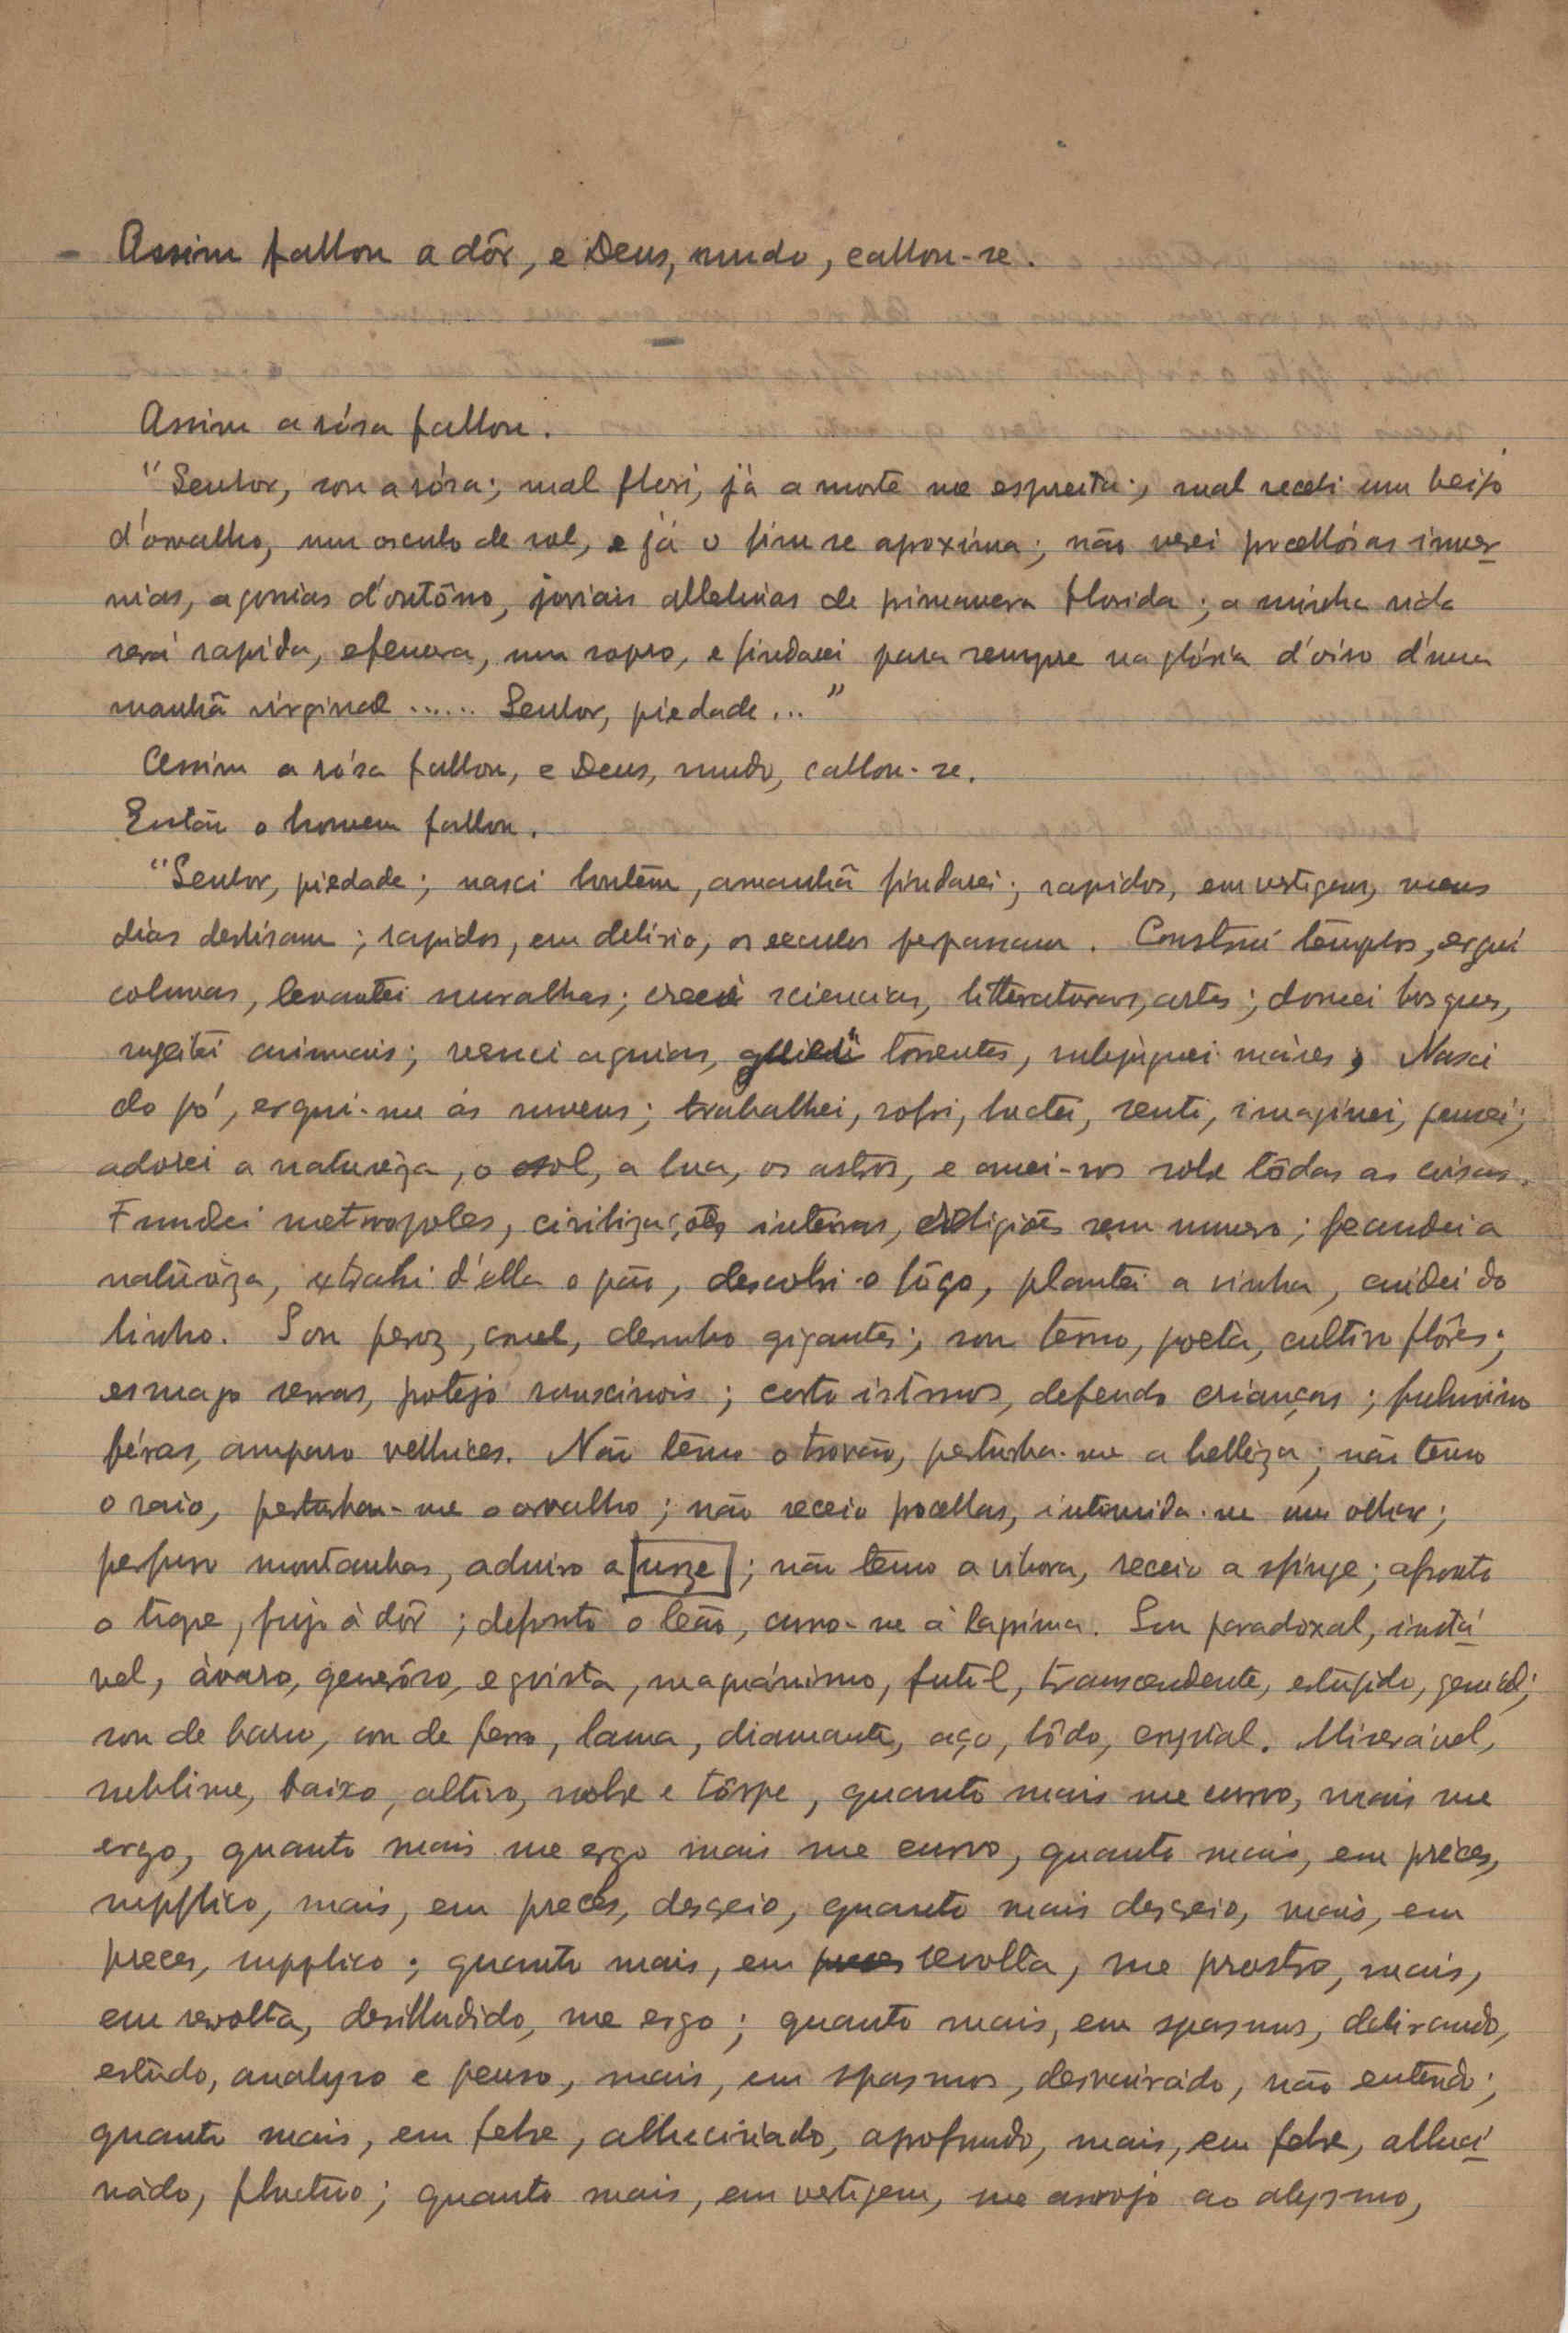 - Assim fallou a dôr, e Deus, mudo, callou-se.
Assim a rósa fallou.
"Senhor, sou a rósa; mal flori, já a morte me espreita; mal recebi um beijo
d'orvalho, um osculo de sol, e já o fim se aproxima; não verei procellósas inver-
nias, agonias d'outôno, joviais alleluias de primavera florida; a minha vida
será rapida, efemera, um sopro, e findarei para sempre na glória d'oiro d'uma
manhã virginal ...... Senhor, piedade..."
Assim a rósa fallou, e Deus, mudo, callou-se.
Então o homem fallou.
"Senhor, piedade; nasci hontem, amanhã findarei; rapidos, em vertigem, meus
dias deslisam; rapidos, em delirio, os seculos perpassam. Construí templos, erguí
colunas, levantei muralhas; creei sciencias, litteraturas, artes; domei bosques,
sugeitei animais; venci aguias, torrentes, subjuguei máres, Nasci
do pó, ergui-me ás nuvens; trabalhei, sofri, luctei, senti, imaginei, pensei;
adorei a naturêza, o sol, a lua, os astros, e amei-vos sobre tôdas as coisas.
Fundei metropoles, civilizações inteiras, religiões sem numero; fecundei a
naturêza, extrahi d'ella o pão, descobri o fôgo, plantei a vinha, cuidei do
linho. Sou feroz, cruel, derrubo gigantes; sou terno, poeta, cultivo flôres;
esmago serras, protejo rouxinois; corto istmos, defendo crianças; fulmino
féras, amparo velhices. Não têmo o trovão, perturba-me a bellêza; não têmo
o raio, perturba-me o orvalho; não receio procellas, intimida-me um olhar;
perfuro montanhas, admiro a [urze]; não temo a vibora, receio a sfinge; afronto
o tigre, fujo á dôr; defronto o leão, curvo-me á lagrima. Sou paradoxal, instá-
vel, ávaro, generôso, egoista, magnánimo, futil, transcendente, estúpido, genial;
sou de barro, sou de ferro, lama, diamante, aço, lôdo, crystal. Miserável,
sublime, baixo, altivo, nobre e tôrpe, quanto mais me curvo, mais me
ergo, quanto mais me ergo mais me curvo, quanto mais, em préces,
supplico, mais, em preces, descreio, quanto mais descreio, mais, em
preces, supplico; quanto mais, em preces revolta, me prostro, mais,
em revolta, desilludido, me ergo; quanto mais, em spasmos, delirando,
estúdo, analyso e penso, mais, em spasmos, desvairado, não entendo;
quanto mais, em febre, allucinado, aprofundo, mais, em febre, alluci-
nado, fluctuo; quanto mais, em vertigem, me arrojo ao abysmo,